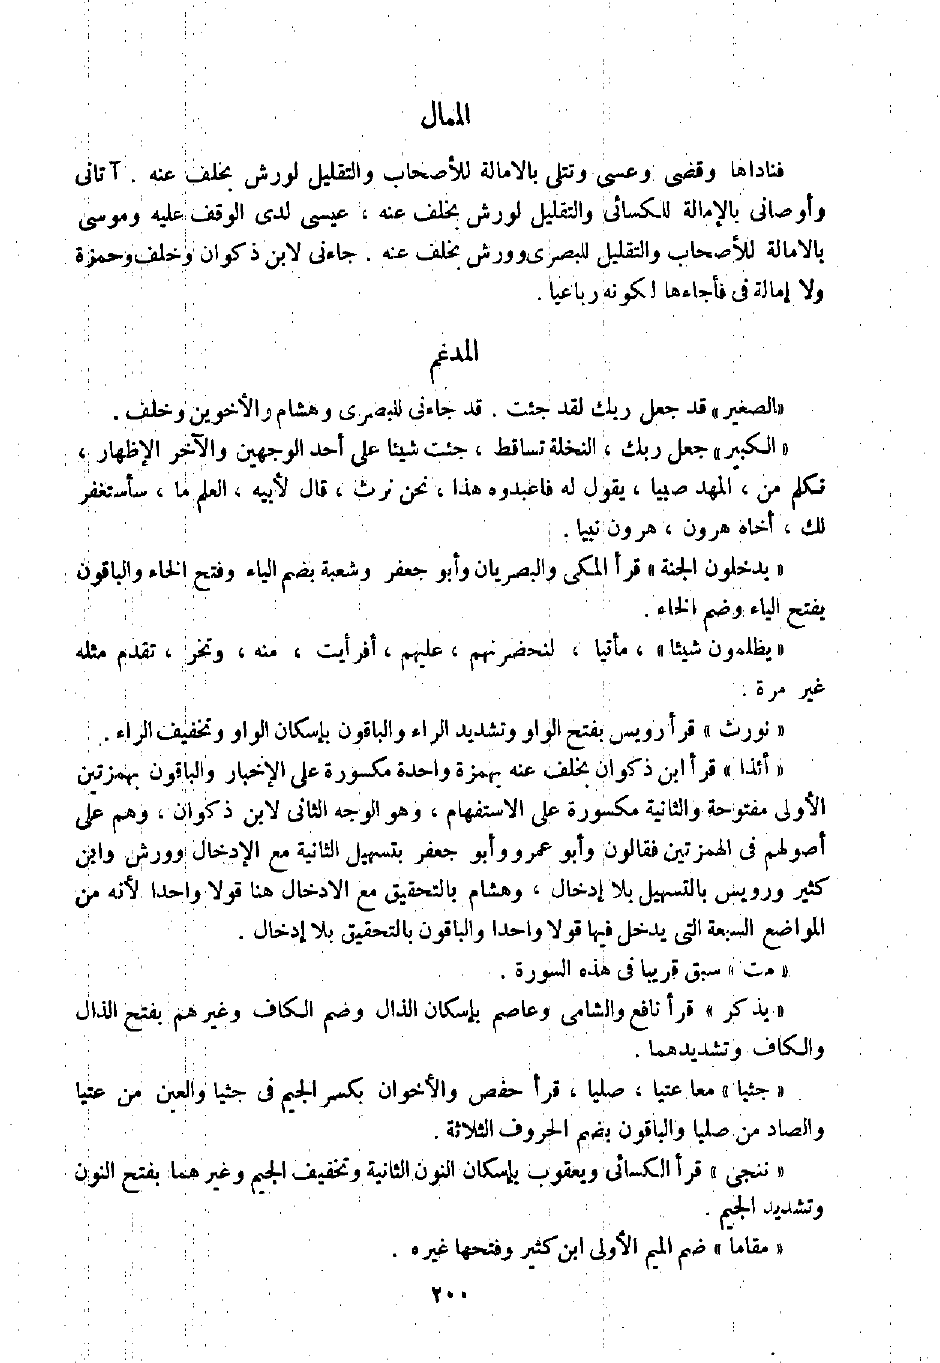 الممال
فناداها وقضى وعسى وتتلى بالامالة للأصحاب والتقليل لورش بخلف عنه . آتانى
وأوصانى بالإمالة للكسائى والتقليل لورش بخلف عنه ، عيسى لدى الوقف عليه وموسى
بالامالة للأصحاب والتقليل للبصرى وورش بخلف عنه . جاءنى لابن ذكوان وخلف وحمزة
ولا إمالة فى فأجاءها لكونه رباعيا .
المدغم
«الصغير» قد جعل ربك لقد جئت . قد جاءنى للبصرى وهشام والأخوين وخلف .
« الكبير» جعل ربك ، النخلة تساقط ، جئت شيئا على أحد الوجهين والآخر الإظهار ،
نكلم من ، المهد صبيا ، يقول له فاعبدوه هذا ، نحن نرث ، قال لأبيه ، العلم ما ، سأستغفر
لك ، أخاه هرون ، هرون نبيا .
« يدخلون الجنة » قرأ المكى والبصريان وأبو جعفر وشعبة بضم الياء وفتح الخاء والباقون
بفتح الياء وضم الخاء .
« يظلمون شيئا » ، مأتيا ، لنحضرنهم ، عليهم ، أفرأيت ، منه ، وتخر ، تقدم مثله
غير مرة .
« نورث » قرأ رويس بفتح الواو وتشديد الراء والباقون بإسكان الواو وتخفيف الراء .
« أئذا » قرأ ابن ذكوان بخلف عنه بهمزة واحدة مكسورة على الإخبار والباقون بهمزتين
الأولى مفتوحة والثانية مكسورة على الاستفهام ، وهو الوجه الثانى لابن ذكوان ، وهم على
أصولهم فى الهمزتين فقالون وأبو عمرو وأبو جعفر بتسهيل الثانية مع الإدخال وورش وابن
كثير ورويس بالتسهيل بلا إدخال ، وهشام بالتحقيق مع الادخال هنا قولا واحدا لأنه من
المواضع السبعة التى يدخل فيها قولا واحدا والباقون بالتحقيق بلا إدخال .
« مت » سبق قريبا فى هذه السورة .
« يذكر » قرأ نافع والشامى وعاصم بإسكان الذال وضم الكاف وغيرهم بفتح الذال
والكاف وتشديدهما .
« جثيا » معا عتيا ، صليا ، قرأ حفص والأخوان بكسر الجيم فى جثيا والعين من عتيا
والصاد من صليا والباقون بضم الحروف الثلاثة .
« ننجى » قرأ الكسائى ويعقوب بإسكان النون الثانية وتخفيف الجيم وغيرهما بفتح النون
وتشديد الجيم .
« مقاما » ضم الميم الأولى ابن كثير وفتحها غيره .
٢٠٠